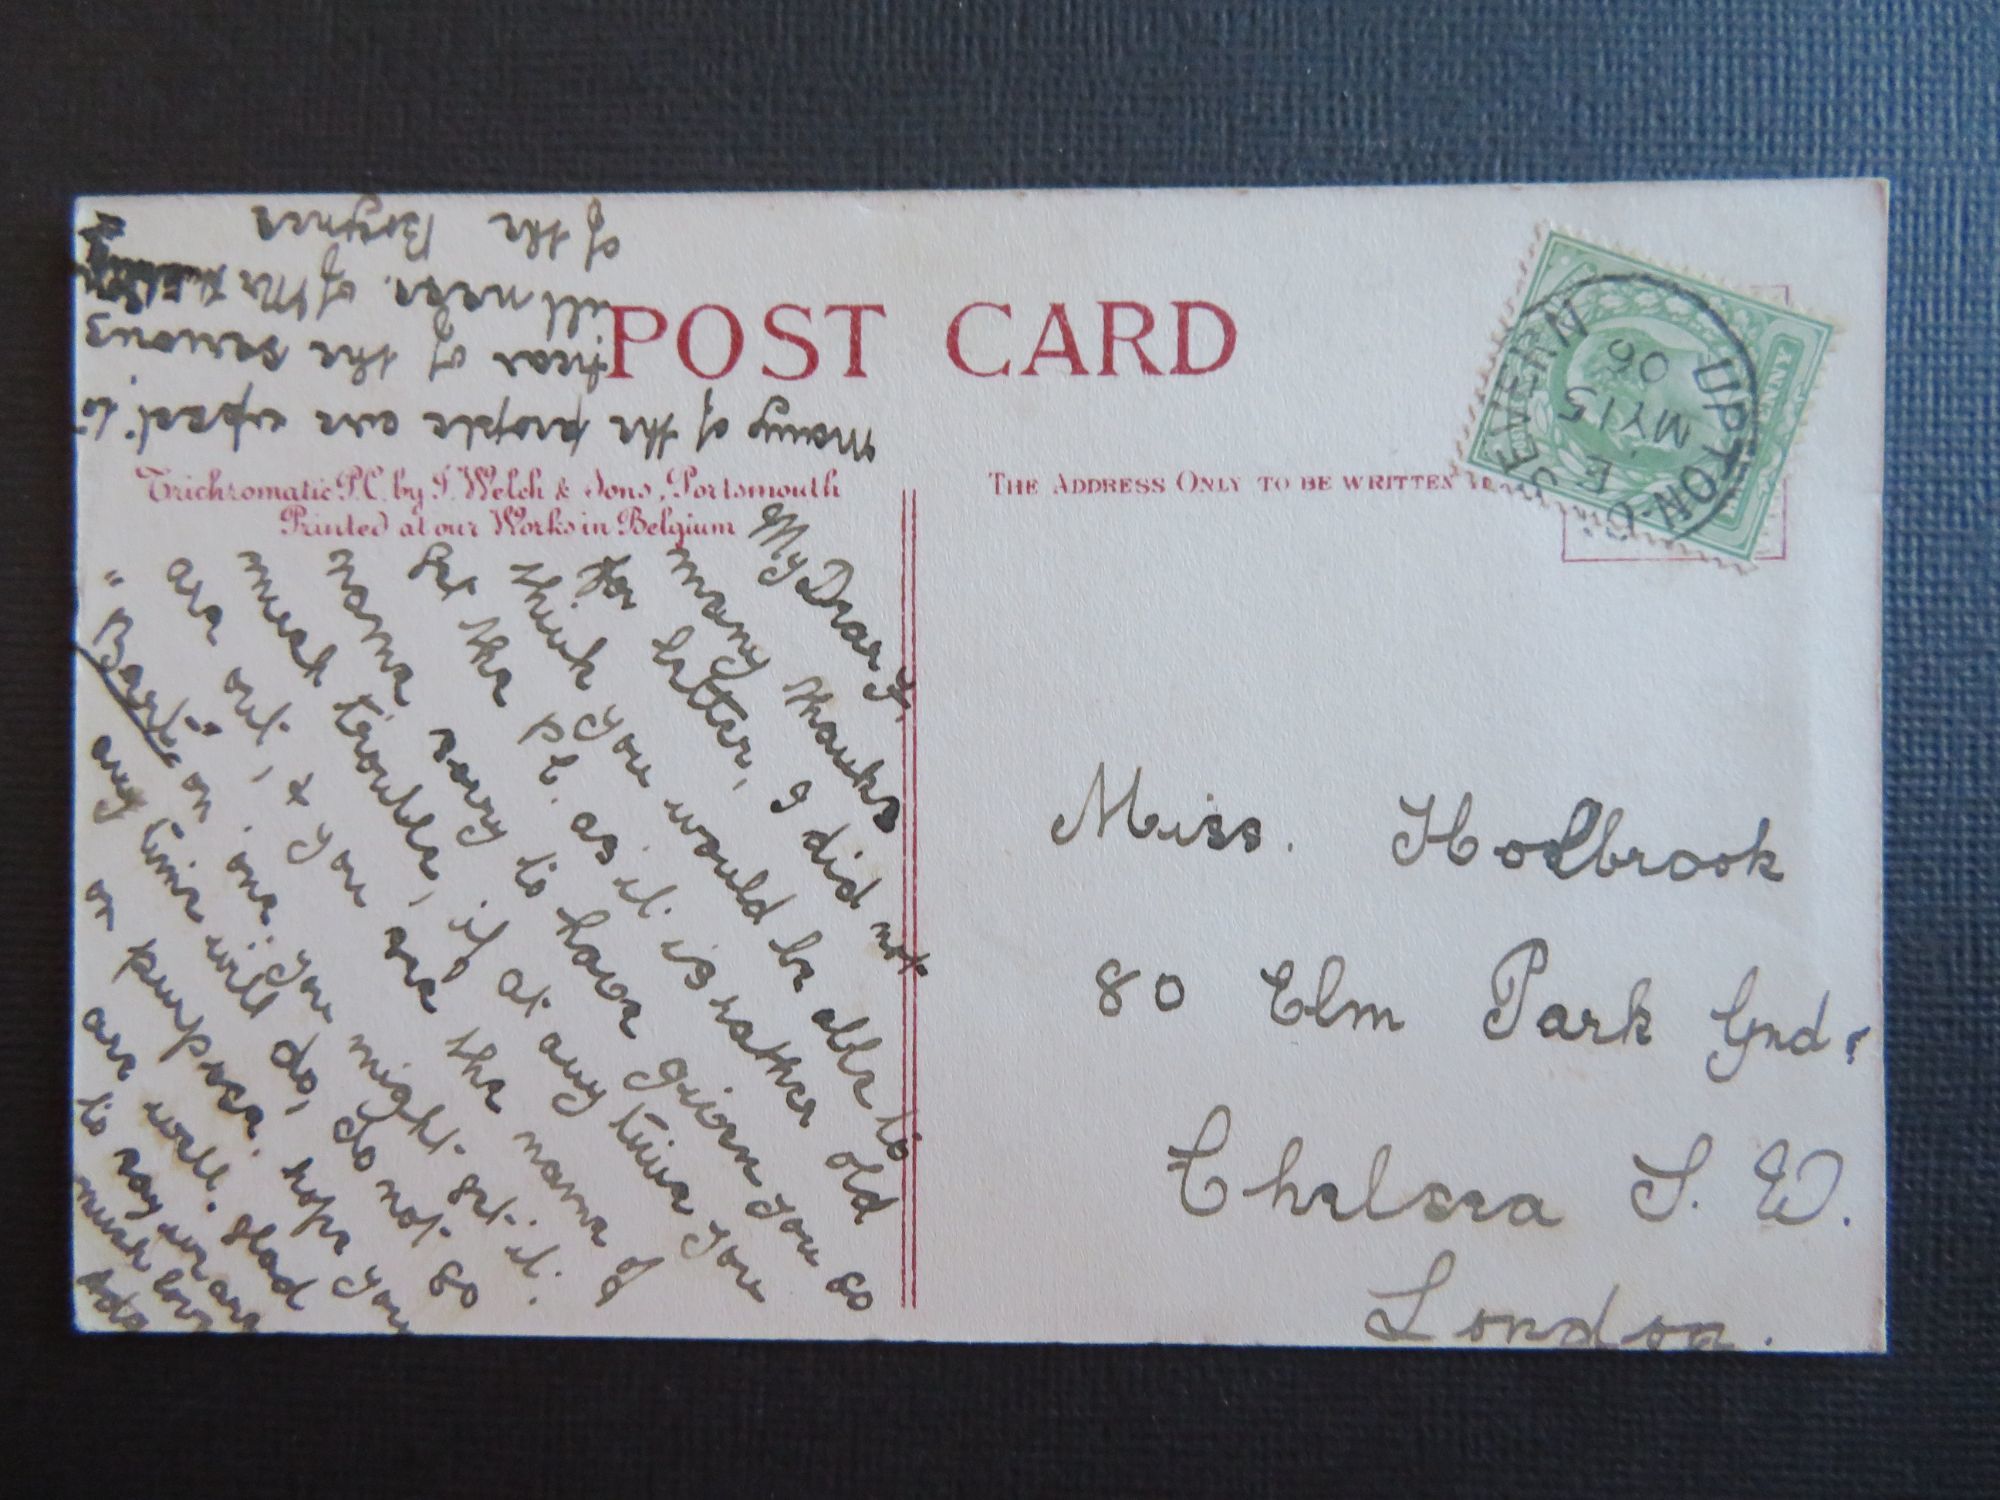 POST CARD
Trichromatic P.C. by J. Welch & Sons, Portsmouth
Printed at our Works in Belgium
THE ADDRESS ONLY TO BE WRITTEN
UPTON-O-SEVERN
E
MY 15
06
My Dear
many thanks
for letter, I did not
think you would be able to
get the pc. as it is rather old
name sorry to have given you so
much trouble, if at any time you
are out, & you see the name of
"Bart" on one you might get it.
any time will do, do not go
on purpose. hope you
are well. glad
to say we are
much love
Ada
many of the people are upset to
hear of the serious
illness. of Mr
of the
Miss. Holbrook
80 Elm Park Gnd.
Chelsea S. W.
London.